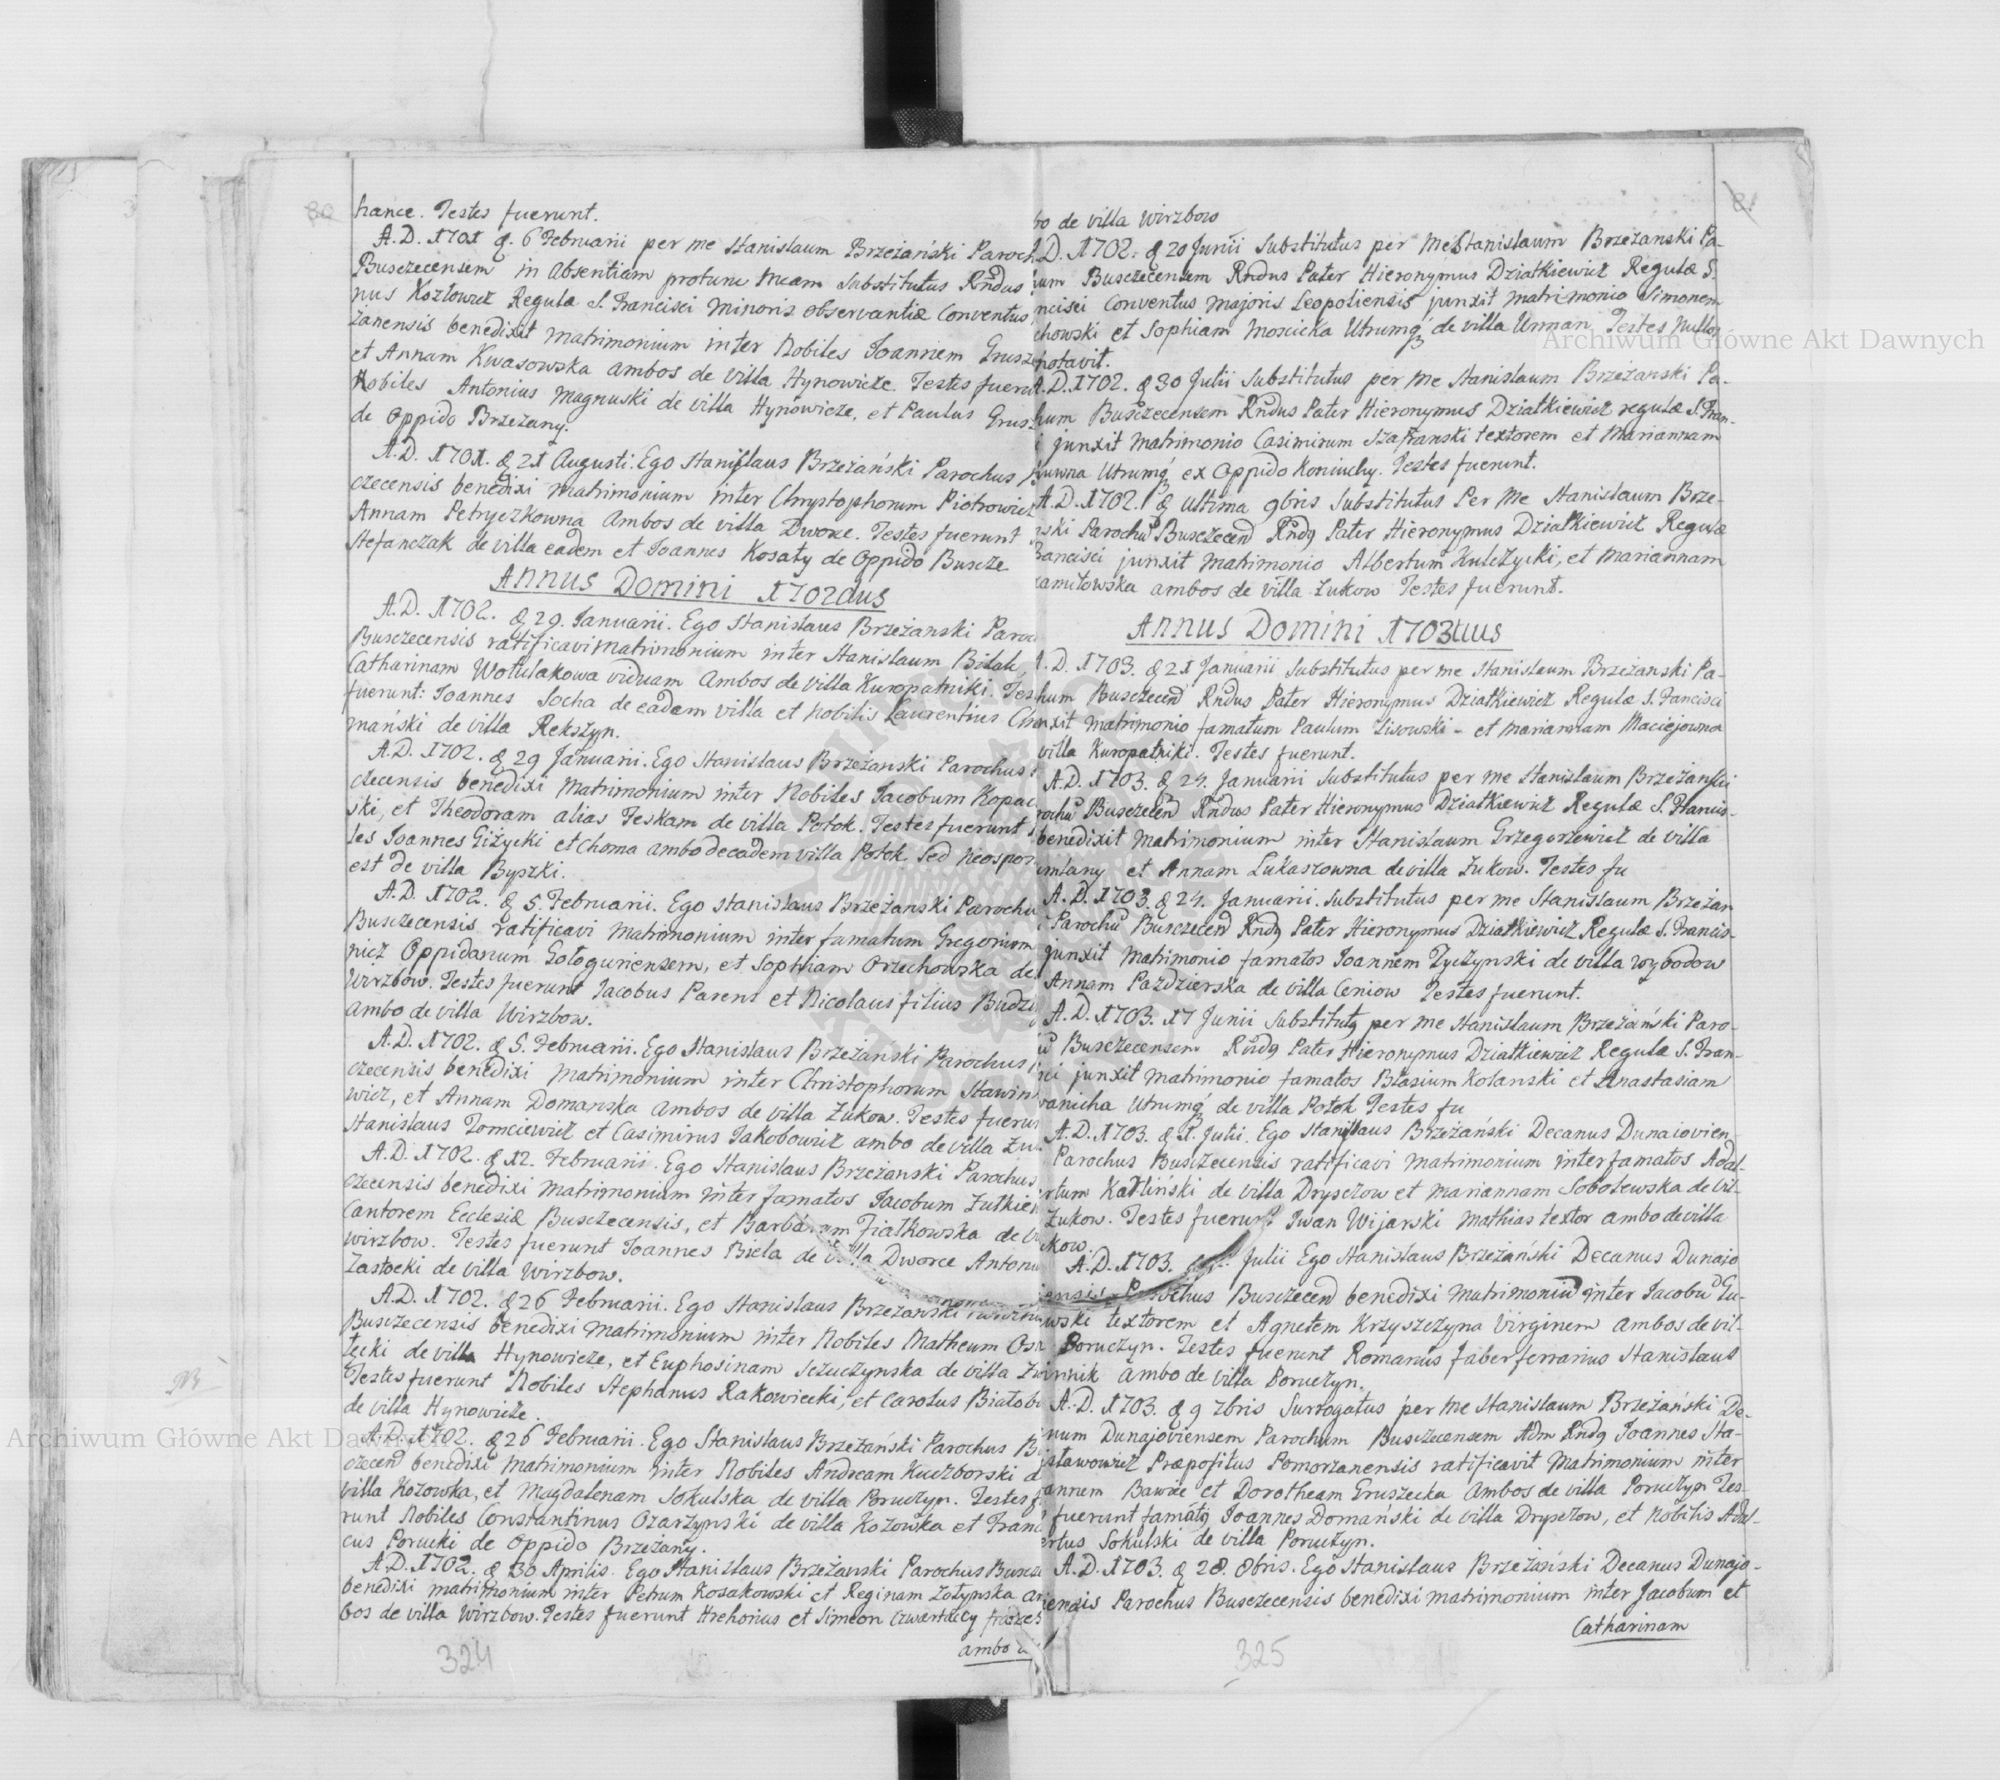 80
hance. Testes fuerunt.
A.D. 1701 d. 6 Februarii per me Stanislaum Brzeżański Paroch
Busczecensem in absentiam protunc meam Substitutus Rndus
nus Kozłowicz Regulæ S. Francisci Minoris observantiæ Conventus
żanensis benedixit matrimonium inter Nobiles Joannem Grusze
et Annam Kwasowska ambos de villa Hynowicze. Testes fuerunt
Nobiles Antonius Magnuski de villa Hynowicze, et Paulus Grus
de Oppido Brzeżany.
A.D. 1701. d 21 Augusti. Ego Stanislaus Brzeżański Parochus
czecensis benedixi matrimonium inter Chrystophorum Piotrowicz
Annam Petryczkowna Ambos de villa Dworce. Testes fuerunt
Stefanczak de villa eadem et Joannes Kosaty de Oppido Buscze
Annus Domini 1702dus
A.D. 1702. d 29. Januarii. Ego Stanislaus Brzeżanski Paroc
Busczecensis ratificavi Matrimonium inter Stanislaum Bilak,
Catharinam Wotulakowa viduam Ambos de villa Kuropatniki. Tes
fuerunt: Joannes Socha de eadem villa et Nobilis Laurentius
mański de villa Rekszyn.
A.D. 1702. d 29 Januarii. Ego Stanislaus Brzeżanski Parochus
czecensis benedixi Matrimonium inter Nobiles Jacobum Kopac
ski, et Theodoram alias Teskam de villa Potok. Testes fuerunt
les Joannes Giżycki et Choma ambo de eadem villa Potok. Sed Neospon
est de villa Byszki.
A.D. 1702. d 5. Februarii. Ego Stanislaus Brzeżanski Parochu
Busczecensis ratificavi Matrimonium inter famatum Gregorium
nicz Oppidanum Gołoguriensem, et Sophiam Orzechowska de
Wirzbow. Testes fuerunt Jacobus Parens et Nicolaus filius Budzi
Ambo de villa Wirzbow.
A.D. 1702. d 5. Februarii. Ego Stanislaus Brzeżanski Parochus
czecensis benedixi Matrimonium inter Christophorum Sławin
wicz, et Annam Domanska Ambos de villa Żukow. Testes fuerun
Stanislaus Tomciewicz et Casimirus Jakobowicz ambo de villa Żu
A.D. 1702. d 12. Februarii. Ego Stanislaus Brzeżanski Parochus
czecensis benedixi Matrimonium inter famatos Jacobum Żułkie
Cantorem Ecclesiæ Busczecensis, et Barbaram Fiałkowska de
Wirzbow. Testes fuerunt Joannes Biela de villa Dworce Anton
Zastocki de villa Wirzbow.
A.D. 1702. d 26 Februarii. Ego Stanislaus Brzeżanski
Busczecensis benedixi Matrimonium inter Nobiles Matheum
tecki de villa Hynowicze, et Euphosinam Szczuczynska de villa
Testes fuerunt Nobiles Stephanus Rakowiecki, et Carolus Białob
de villa Hynowicze.
A.D. 1702. d 26 Februarii. Ego Stanislaus Brzeżański Parochus B
czecen benedixi Matrimonium inter Nobiles Andream Kuczborski d
villa Kozowka, et Magdalenam Sokulska de villa Poruczyn. Testes f
runt Nobiles Constantinus Ozarzynski de villa Kozowka et Franc
cus Porucki de Oppido Brzeżany.
A.D. 1702. d 30 Aprilis. Ego Stanislaus Brzeżanski Parochus Buscze
benedixi matrimonium inter Petrum Kosakowski et Reginam Zołynska am
bos de villa Wirzbow. Testes fuerunt Hrehorius et Simeon Czwartacy
ambo
324
81
bo de villa Wirzbow
A.D. 1702. d 20 Junii Substitutus per me Stanislaum Brzeżanski Pa-
um Busczecensem Rndus Pater Hieronymus Działkiewicz Regulæ S.
ncisci Conventus Majoris Leopoliensis junxit matrimonio Simonem
chowski et Sophiam Moscicka Utrumq de villa Urman Testes Nullos
notavit.
A.D. 1702. d 30 Julii Substitutus per me Stanislaum Brzeżanski Pa-
hum Busczecensem Rndus Pater Hieronymus Działkiewicz regulæ S. Fran-
i junxit matrimonio Casimirum Szafranski textorem et Mariannam
uwna Utrumq ex Oppido Koniuchy. Testes fuerunt.
A.D. 1702. d Ultima 9bris Substitutus Per me Stanislaum Brze-
ski Parochu Busczecen Rndq Pater Hieronymus Działkiewicz Regulæ
Francisci junxit Matrimonio Albertum Kulczycki, et Mariannam
amułowska ambos de villa Żukow Testes fuerunt.
Annus Domini 1703tius
A.D. 1703. d 21 Januarii Substitutus per me Stanislaum Brzeżanski Pa-
hum Busczecen Rndus Pater Hieronymus Działkiewicz Regulæ S. Francisci
nxit Matrimonio famatum Paulum Lisowski - et Mariannam Maciejowna
villa Kuropatniki. Testes fuerunt.
A.D. 1703. d 24. Januarii Substitutus per me Stanislaum Brzeżanski
rochu Busczecen Rndus Pater Hieronymus Działkiewicz Regulæ S. Francis-
benedixit Matrimonium inter Stanislaum Grzegorzewicz de villa
et Annam Lukaszowna de villa Żukow. Testes fu
A.D. 1703. d 24. Januarii. Substitutus per me Stanislaum Brzeżan
Parochu Busczecen Rndq Pater Hieronymus Działkiewicz Regulæ S. Francis-
junxit Matrimonio famatos Joannem Zyczynski de villa Wybodow
Annam Pazdzierska de villa Ceniow Testes fuerunt.
A.D. 1703. 17 Junii Substitutq per me Stanislaum Brzeżański Paro-
u Busczecensem Rndq Pater Hieronymus Działkiewicz Regulæ S. Fran-
ci junxit Matrimonio famatos Blasium Kolanski et Anastasiam
wanicha Utrumq de villa Potok Testes fu
A.D. 1703. d 1. Julii. Ego Stanislaus Brzeżański Decanus Dunaiovien-
Parochus Busczecensis ratificavi Matrimonium inter famatos Adal-
ertum Karliński de villa Dryszczow et Mariannam Sobolewska de vil-
Żukow. Testes fuerunt Iwan Wijarski Mathias textor ambo de villa
kow.
A.D. 1703. Julii Ego Stanislaus Brzeżański Decanus Dunajo
iensis Parochus Busczecen benedixi Matrimoniu inter Jacobu Gu-
wski textorem et Agnetem Krzyszczyna Virginem Ambos de vil-
Poruczyn. Testes fuerunt Romanus faber ferrarius Stanislaus
innik ambo de villa Poruczyn.
A.D. 1703. d 9 zbris Surrogatus per me Stanislaum Brzeżański De-
num Dunajoviensem Parochum Busczecensem Adm Rndq Joannes Sta-
isławowicz Præpositus Pomorzanensis ratificavit Matrimonium inter
annem Bawże et Dorotheam Gruszecka Ambos de villa Poruczyn Tes-
fuerunt famatq Joannes Domański de villa Dryszczow, et Nobilis Adal-
ertus Sokulski de villa Poruczyn.
A.D. 1703. d 28. 8bris. Ego Stanislaus Brzeżański Decanus Dunajo-
iensis Parochus Busczecensis benedixi matrimonium inter Jacobum et
Catharinam
325
Archiwum Główne Akt Dawnych
Archiwum Główne Akt Dawnych